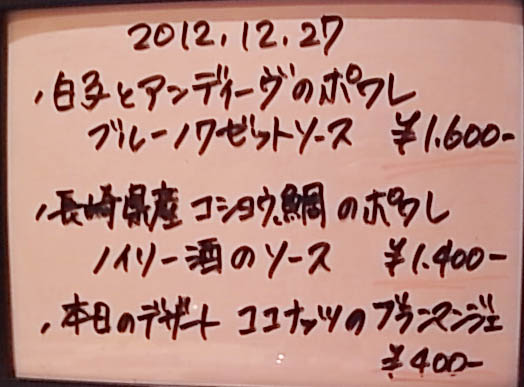 2012.12.27
・白子とアンディーヴのポワレ
ブルーノワゼットソース ¥1.600-
・長崎県産 コショウ鯛のポワレ
ノイリー酒のソース ¥1.400-
・本日のデザート ココナッツのブランマンジェ
¥400-